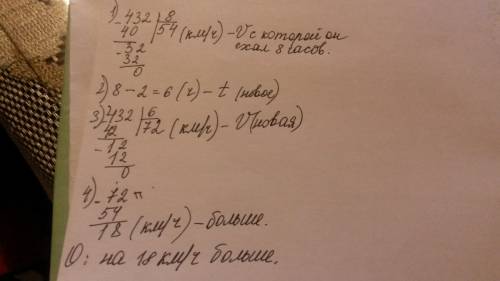 1) -432 | 8
40 | 54 (км/ч) - V с которой он
-32 ехал 8 часов.
32
0
2) 8 - 2 = 6 (ч) - t (новое)
3) -432 | 6
42 | 72 (км/ч) - V (новая)
-12
12
0
4) -72
54
18 (км/ч) - больше.
О: на 18 км/ч больше.